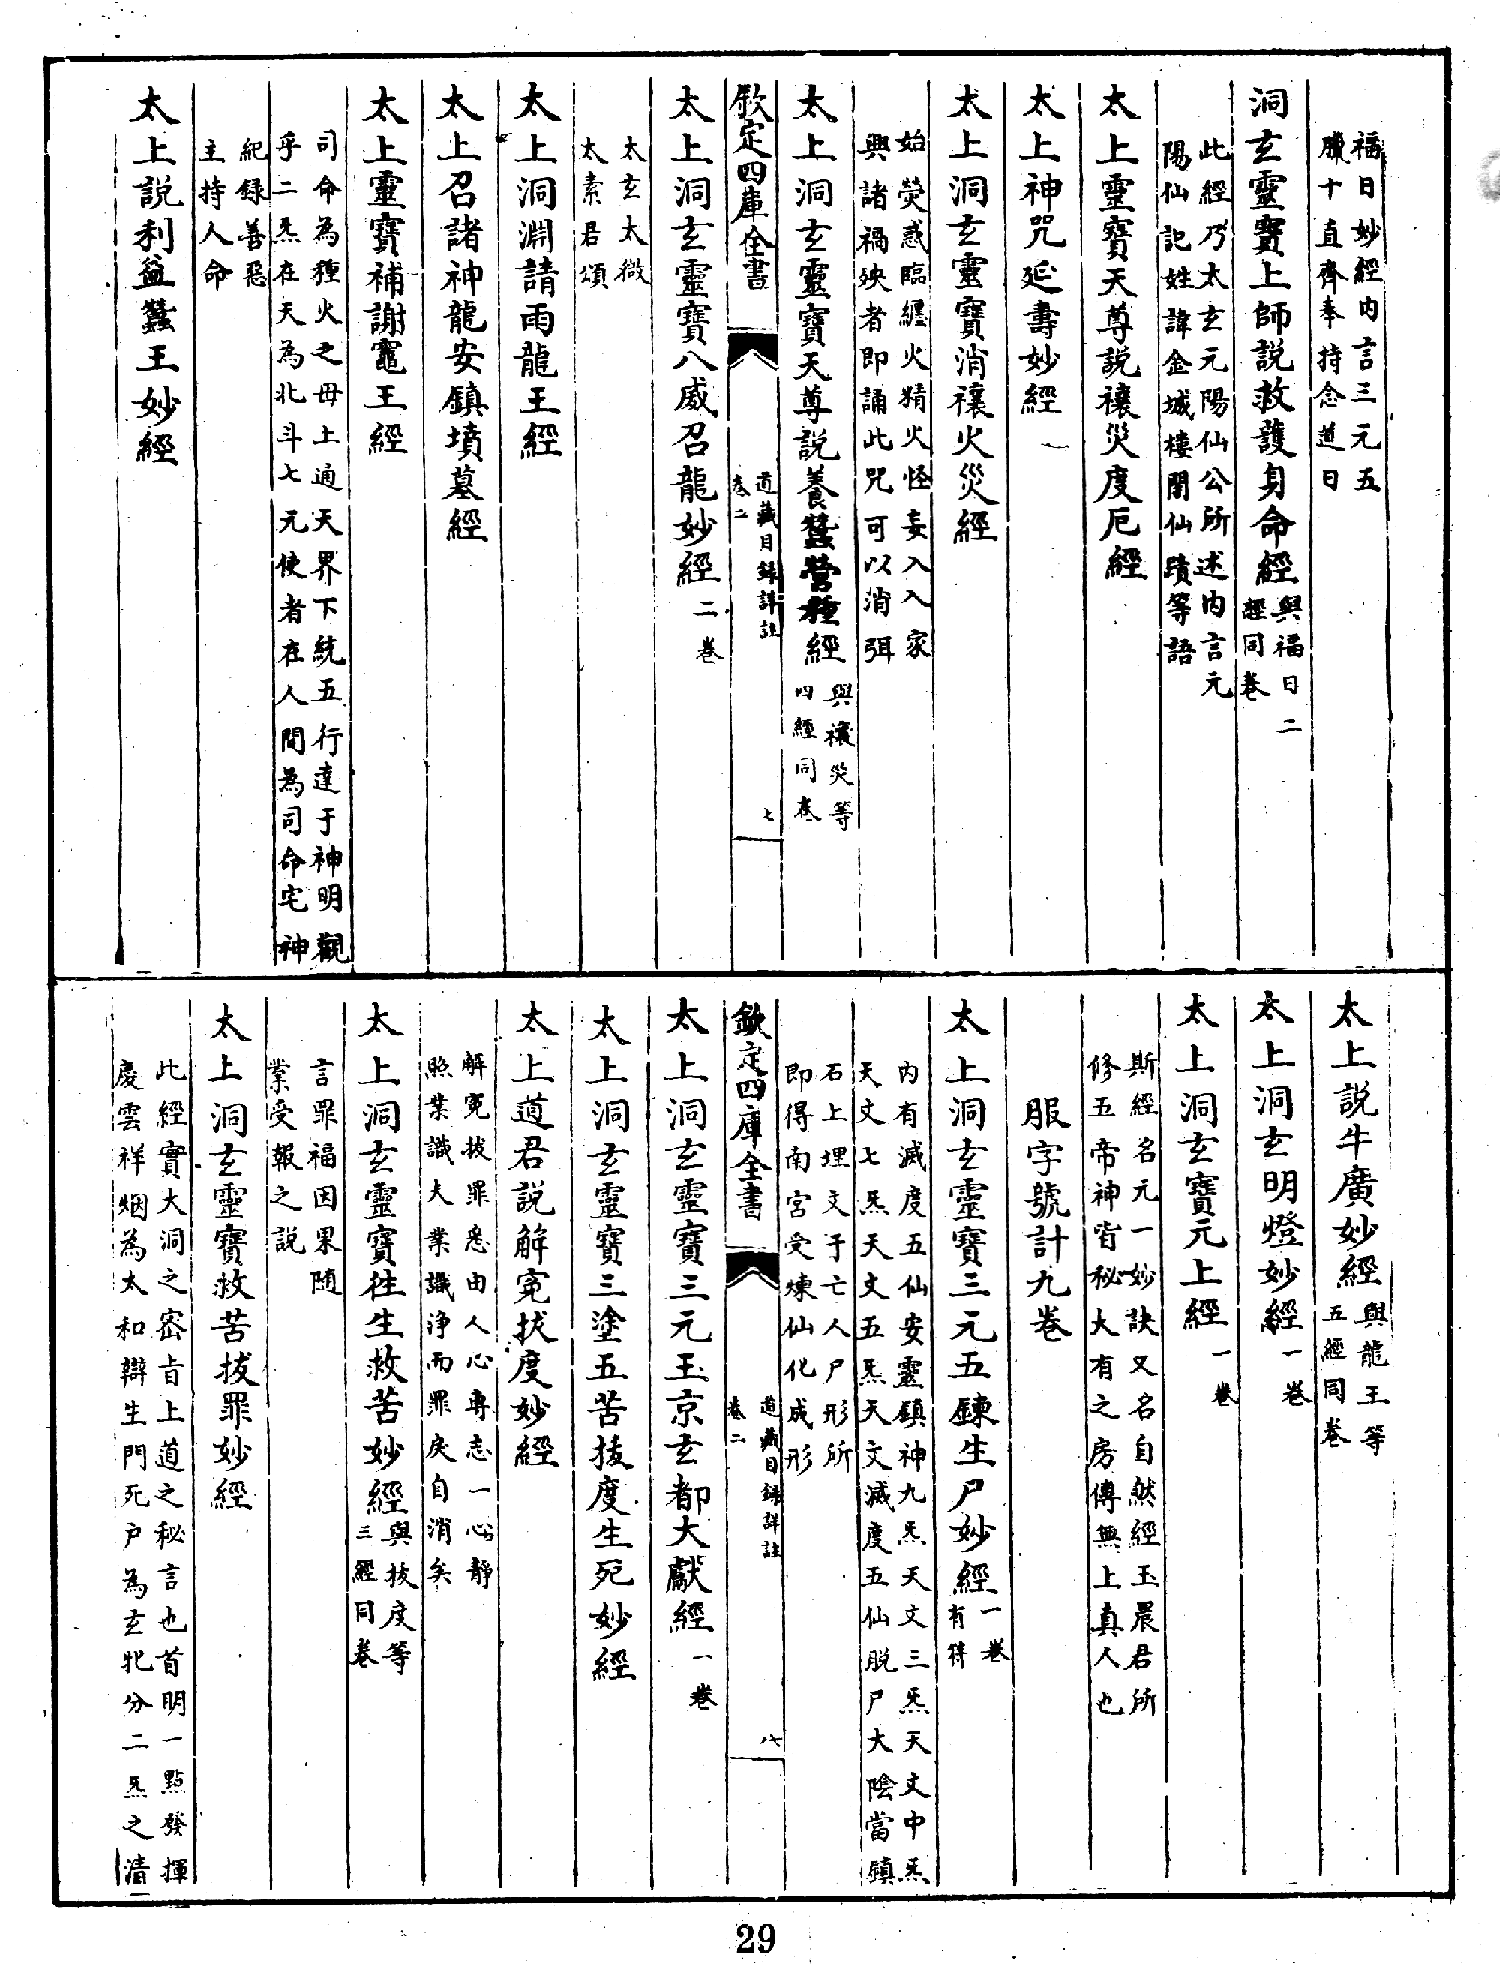 福日妙經内言三元五
臘十直齊奉持念道日
洞玄靈寶上師説救護身命經與福日二
經同卷
此經乃太玄元陽仙公所述内言元
陽仙記姓諱金城樓閣仙蹟等語
太上靈寶天尊説禳災度厄經
太上神咒延壽妙經
太上洞玄靈寶消禳火災經
始熒惑臨纏火精火怪妄入人家
興諸禍殃者即誦此咒可以消弭
太上洞玄靈寶天尊説養蠶營種經與禳災等
四經同卷
欽定四庫全書
道藏目録詳註
卷二
七
太上洞玄靈寶八威召龍妙經二卷
太玄太微
太素君頌
太上洞淵請雨龍王經
太上召諸神龍安鎮墳墓經
太上靈寶補謝竈王經
司命為種火之母上通天界下統五行達于神明觀
乎二炁在天為北斗七元使者在人間為司命宅神
紀録善惡
主持人命
太上説利益蠶王妙經
太上説牛廣妙經與龍王等
五經同卷
太上洞玄明燈妙經一卷
太上洞玄寶元上經一卷
斯經名元一妙訣又名自然經玉晨君所
修五帝神皆秘大有之房傳無上真人也
服字號計九卷
太上洞玄靈寶三元五鍊生尸妙經一卷
有符
内有滅度五仙安靈鎮神九炁天文三炁天文中炁
天文七炁天文五炁天文滅度五仙脱尸大陰當鎮
石上埋文于亡人尸形所
即得南宮受煉仙化成形
欽定四庫全書
道藏目録詳註
卷二
八
太上洞玄靈寶三元玉京玄都大獻經一卷
太上洞玄靈寶三塗五苦拔度生死妙經
太上道君説解冤拔度妙經
解冤拔罪悉由人心專志一心靜
照業識大業識淨而罪戾自消矣
太上洞玄靈寶往生救苦妙經與拔度等
三經同卷
言罪福因果隨
業受報之説
太上洞玄靈寶救苦拔罪妙經
此經實大洞之宻旨上道之秘言也首明一點發揮
慶雲祥烟為太和辯生門死户為玄牝分二炁之清
29